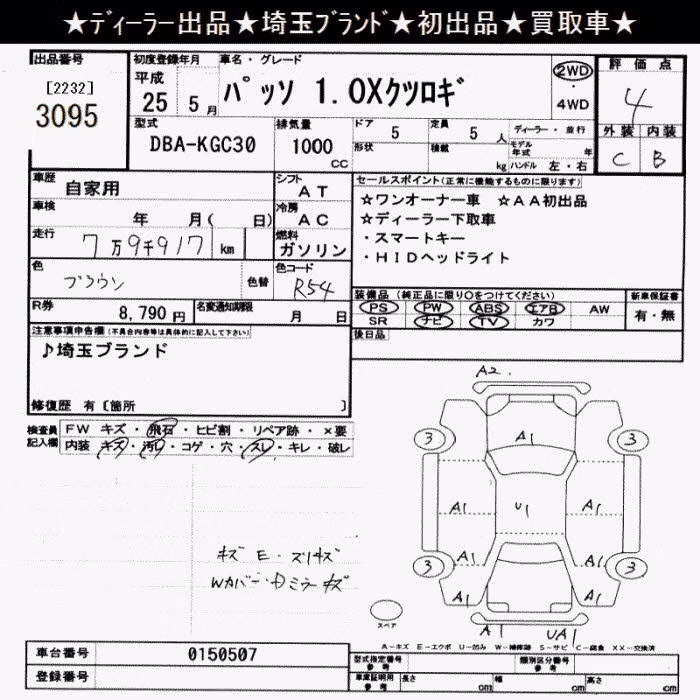 ★ディーラー出品★埼玉ブランド★初出品★買取車★
出品番号
[2232]
3095
初度登録年月
平成
25 5月
車名・グレード
パッソ 1.0Xクツロギ
2WD
・
4WD
評価点
4
外装 内装
C B
型式
DBA-KGC30
排気量
1000
CC
ドア 5
形状
定員 5 人
積載 kg
ディーラー・並行
モデル年式 年
ハンドル 左・右
車歴 自家用
シフト AT
車検 年 月( 日)
冷房 AC
走行 7万9千917 km
燃料 ガソリン
色 ブラウン
色替
色コード R54
R券 8,790円
名変通知期限 月 日
セールスポイント(正常に機能するものに限ります)
☆ワンオーナー車 ☆AA初出品
☆ディーラー下取車
・スマートキー
・HIDヘッドライト
装備品(純正品に限り○をつけてください)
PS PW ABS エアB AW
SR ナビ TV カワ
新車保証書
有・無
後日品
注意事項申告欄(不具合内容等は具体的に記入して下さい)
♪埼玉ブランド
修復歴 有〔箇所 〕
検査員記入欄
FW キズ・飛石・ヒビ割・リペア跡・×要
内装 キズ・汚れ・コゲ・穴・スレ・キレ・破レ
キズ E・スリキズ
Wカバー・Dミラーキズ
A2
3
3
A1
A1
U1
A1
A1
A1
3
3
A1
A1
A1
UA1
スペア
A－キズ E－エクボ U－凹み W－補修跡 S－サビ C－腐食 XX－交換済
車台番号 0150507
登録番号
型式指定番号
参考
類別区分番号
参考
車庫証明用
参考
長さ cm
幅 cm
高さ cm